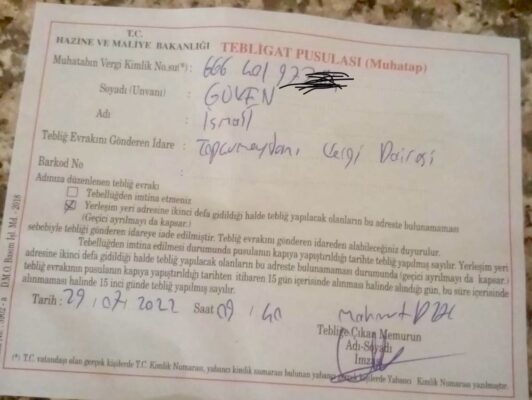 T.C.
HAZİNE VE MALİYE BAKANLIĞI
TEBLİGAT PUSULASI (Muhatap)
Muhatabın Vergi Kimlik No.su(*) : 666 401 97
Soyadı (Unvanı) : GÜVEN
Adı : İsmail
Tebliğ Evrakını Gönderen İdare : Topçumeydanı Vergi Dairesi
Barkod No :
Adınıza düzenlenen tebliğ evrakı
Tebellüğden imtina etmeniz
Yerleşim yeri adresine ikinci defa gidildiği halde tebliğ yapılacak olanların bu adreste bulunamaması
(Geçici ayrılmayı da kapsar.)
sebebiyle tebliği gönderen idareye iade edilmiştir. Tebliğ evrakını gönderen idareden alabileceğiniz duyurulur.
Tebellüğden imtina edilmesi durumunda pusulanın kapıya yapıştırıldığı tarihte tebliğ yapılmış sayılır. Yerleşim yeri
adresine ikinci defa gidildiği halde tebliğ yapılacak olanların bu adreste bulunamaması durumunda (geçici ayrılmayı da kapsar)
tebliğ evrakının pusulanın kapıya yapıştırıldığı tarihten itibaren 15 gün içerisinde alınması halinde alındığı gün, bu süre içerisinde
alınmaması halinde 15 inci günde tebliğ yapılmış sayılır.
Tarih : 29.07.2022 Saat 09:40
Mahmut
Tebliğe Çıkan Memurun
Adı-Soyadı
İmzası
(*) T.C. vatandaşı olan gerçek kişilerde T.C. Kimlik Numarası, yabancı kimlik numarası bulunan yabancı gerçek kişilerde Yabancı Kimlik Numarası yazılmıştır.
D.M.O. Basım İşl. Md. - 2018